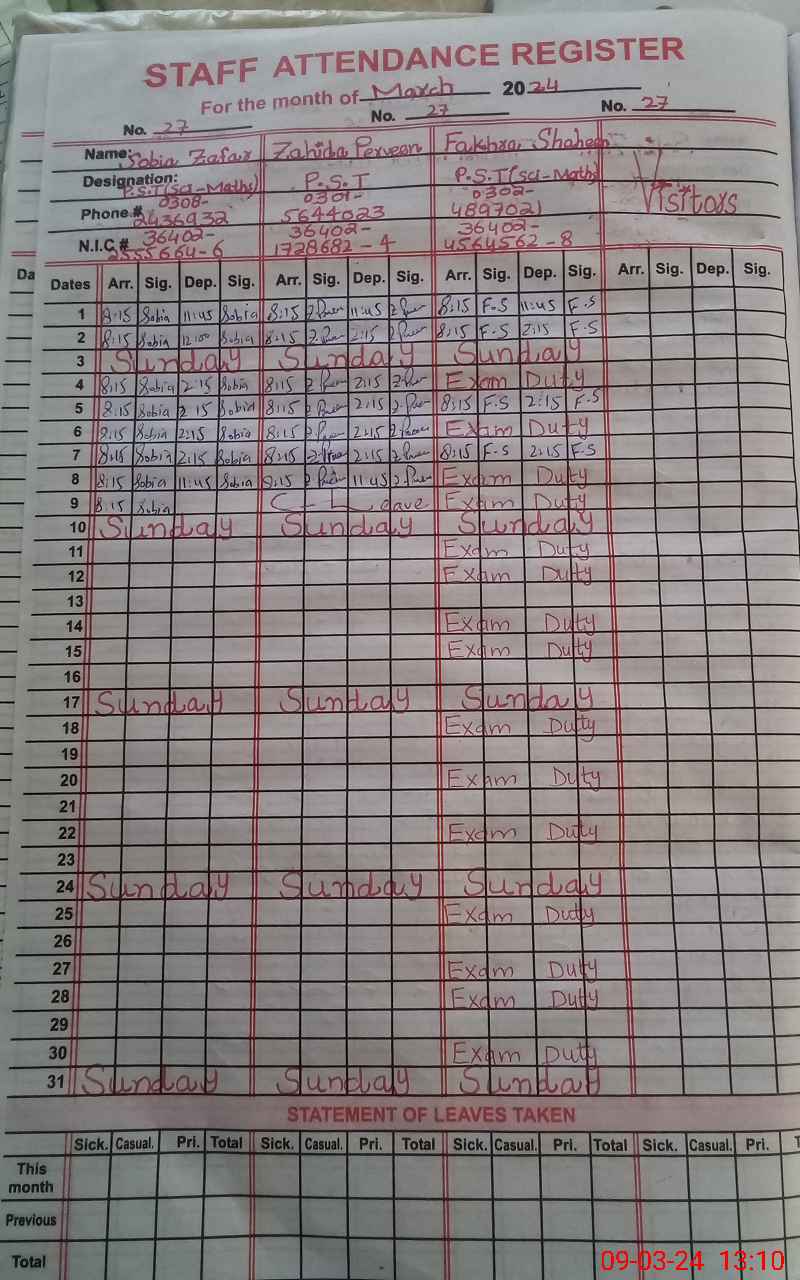 STAFF ATTENDANCE REGISTER
For the month of March 2024
No. 27 No. 27 No. 27
Name: Sobia Zafar Zahida Perveen Fakhra Shaheen
Designation: P.S.T(Sci-Maths) P.S.T P.S.T(Sci-Maths) Visitors
0308- 0301- 0302-
Phone # 2436932 5644023 4897021
36402- 36402- 36402-
N.I.C.# 2555664-6 1728682-4 4564562-8
Dates Arr. Sig. Dep. Sig. Arr. Sig. Dep. Sig. Arr. Sig. Dep. Sig. Arr. Sig. Dep. Sig.
1 8:15 Sobia 11:45 Sobia 8:15 11:45 8:15 F.S 11:45 F.S
2 8:15 Sobia 12:00 Sobia 8:15 2:15 8:15 F.S 2:15 F.S
3 Sunday Sunday Sunday
4 8:15 Sobia 2:15 Sobia 8:15 2:15 Exam Duty
5 8:15 Sobia 2 15 Sobia 8:15 2:15 8:15 F.S 2:15 F.S
6 8:15 Sobia 2:15 Sobia 8:15 2:15 Exam Duty
7 8:15 Sobia 2:15 Sobia 8:15 2:15 8:15 F.S 2:15 F.S
8 8:15 Sobia 11:45 Sobia 8:15 11:45 Exam Duty
9 8:15 Sobia Exam Duty
10 Sunday Sunday Sunday
11 Exam Duty
12 Exam Duty
13
14 Exam Duty
15 Exam Duty
16
17 Sunday Sunday Sunday
18 Exam Duty
19
20 Exam Duty
21
22 Exam Duty
23
24 Sunday Sunday Sunday
25 Exam Duty
26
27 Exam Duty
28 Exam Duty
29
30 Exam Duty
31 Sunday Sunday Sunday
STATEMENT OF LEAVES TAKEN
Sick. Casual. Pri. Total Sick. Casual. Pri. Total Sick. Casual. Pri. Total Sick. Casual. Pri.
This
month
Previous
Total
09-03-24 13:10